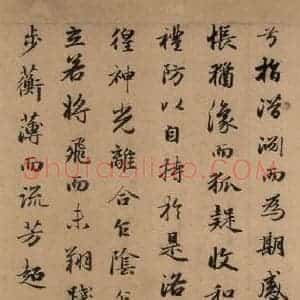 兮指潛淵而為期感
悵猶豫而狐疑收和
禮防以自持於是洛
徨神光離合乍陰乍
立若將飛而未翔踐
步蘅薄而流芳超